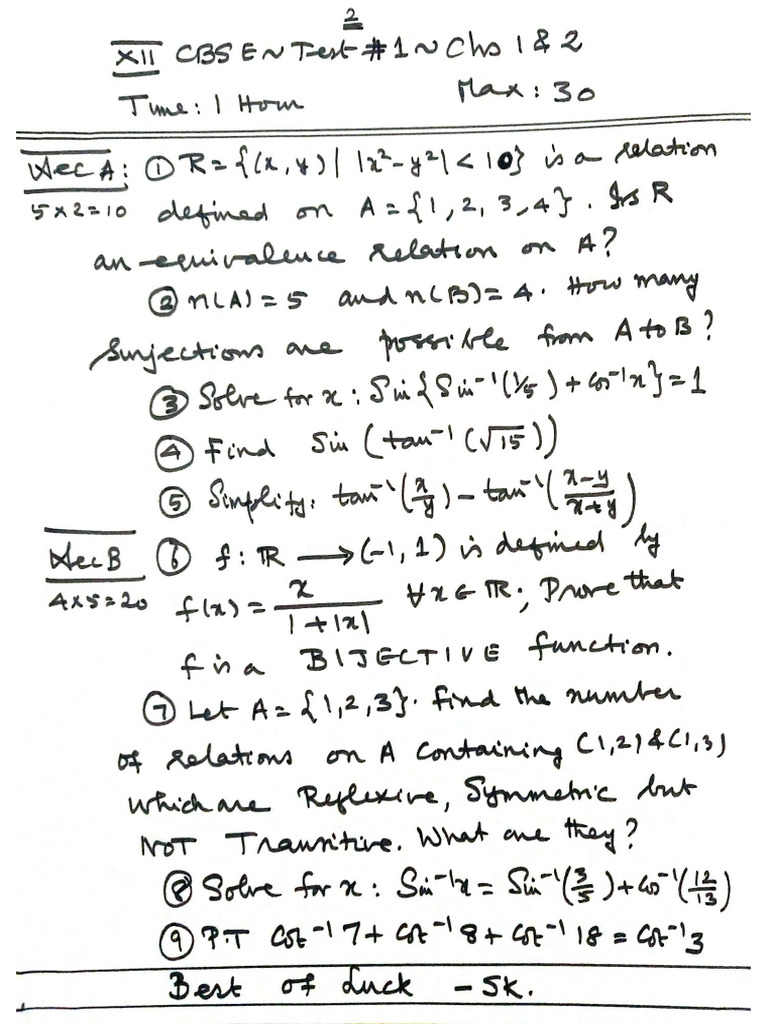 2
XII CBSE ~ Test #1 ~ Chs 1 & 2
Time: 1 Hour Max: 30
Sec A: ① R = {(x, y) | |x² - y²| < 10} is a relation
5 x 2 = 10 defined on A = {1, 2, 3, 4}. Is R
an equivalence relation on A?
② n(A) = 5 and n(B) = 4. How many
Surjections are possible from A to B?
③ Solve for x : Sin{Sin⁻¹(1/5) + Cos⁻¹x} = 1
④ Find Sin (tan⁻¹(√15))
⑤ Simplify: tan⁻¹(x/y) - tan⁻¹((x-y)/(x+y))
Sec B ⑥ f : ℝ ⟶ (-1, 1) is defined by
4 x 5 = 20 f(x) = x/(1+|x|) ∀ x ∈ ℝ; Prove that
f is a BIJECTIVE function.
⑦ Let A = {1, 2, 3}. Find the number
of relations on A containing (1,2) & (1,3)
which are Reflexive, Symmetric but
NOT Transitive. What are they?
⑧ Solve for x : Sin⁻¹x = Sin⁻¹(3/5) + Cos⁻¹(12/13)
⑨ P.T Cot⁻¹7 + Cot⁻¹8 + Cot⁻¹18 = Cot⁻¹3
Best of Luck - SK.